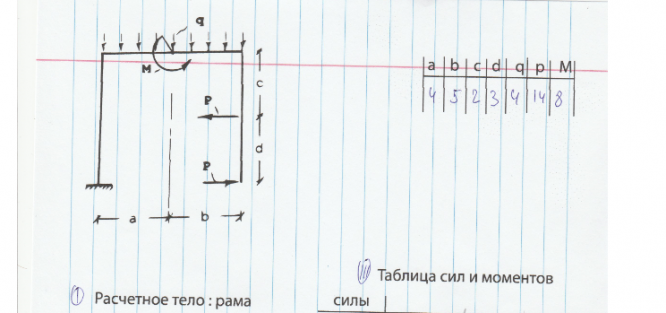 q
M
a b c d q p M
4 5 2 3 4 14 8
c
P
d
P
a b
III Таблица сил и моментов
I Расчетное тело : рама
силы